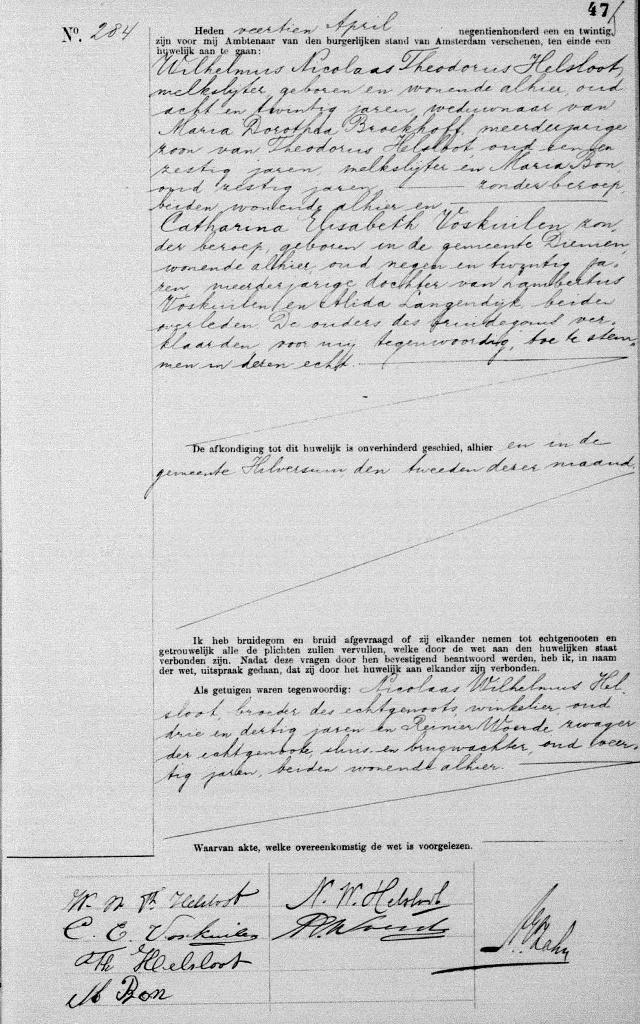 47
No. 284
Heden veertien April negentienhonderd een en twintig,
zijn voor mij Ambtenaar van den burgerlijken stand van Amsterdam verschenen, ten einde een
huwelijk aan te gaan:
Wilhelmus Nicolaas Theodorus Helsloot,
melkslijter, geboren en wonende alhier, oud
acht en twintig jaren, weduwnaar van
Maria Dorothea Broekhoff, meerderjarige
zoon van Theodorus Helsloot, oud een en
zestig jaren, melkslijter en Maria Bon,
oud zestig jaren zonder beroep,
beiden wonende alhier en
Catharina Elisabeth Voskuilen, zon-
der beroep, geboren in de gemeente Diemen,
wonende alhier, oud negen en twintig ja-
ren, meerderjarige dochter van Lambertus
Voskuilen en Alida Langendijk, beiden
overleden. De ouders des bruidegoms ver-
klaarden voor mij tegenwoordig, toe te stem-
men in deren echt.
De afkondiging tot dit huwelijk is onverhinderd geschied, alhier en in de
gemeente Hilversum den tweeden dezer maand.
Ik heb bruidegom en bruid afgevraagd of zij elkander nemen tot echtgenooten en
getrouwelijk alle de plichten zullen vervullen, welke door de wet aan den huwelijken staat
verbonden zijn. Nadat deze vragen door hen bevestigend beantwoord werden, heb ik, in naam
der wet, uitspraak gedaan, dat zij door het huwelijk aan elkander zijn verbonden.
Als getuigen waren tegenwoordig: Nicolaas Wilhelmus Hel-
sloot, broeder des echtgenoots, winkelier, oud
drie en dertig jaren en Reinier Woerde, zwager
der echtgenoote, sluis- en brugwachter, oud veer-
tig jaren, beiden wonende alhier.
Waarvan akte, welke overeenkomstig de wet is voorgelezen.
W. N. Th. Helsloot N. W. Helsloot
C. E. Voskuilen
Th Helsloot
M Bon